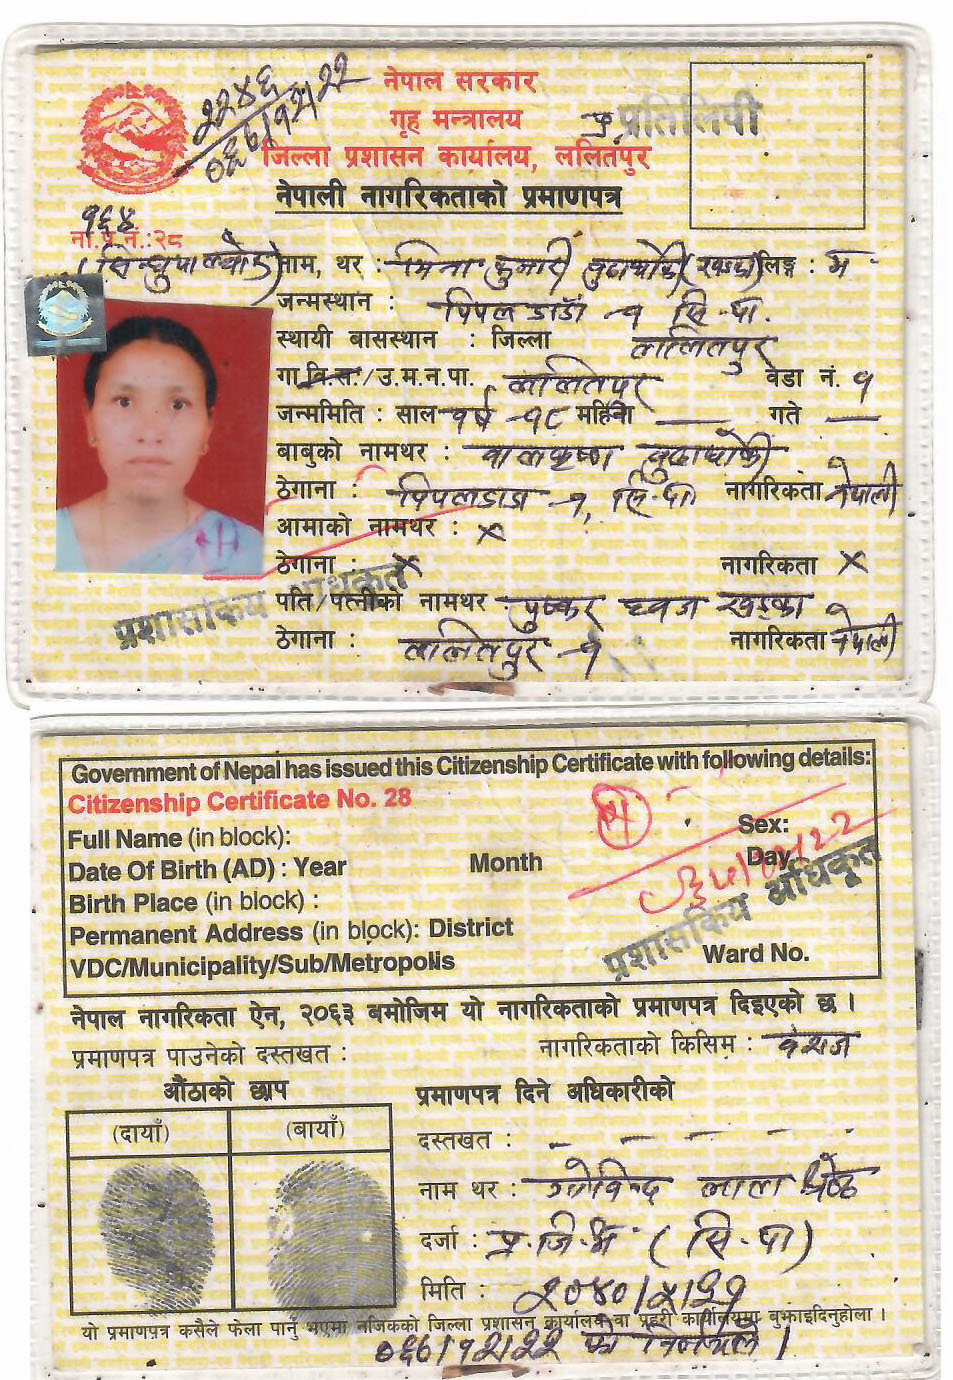 नेपाल सरकार
गृह मन्त्रालय
प्रतिलिपी
जिल्ला प्रशासन कार्यालय, ललितपुर
नेपाली नागरिकताको प्रमाणपत्र
२२४६
०६६।१२।२२
१६४
ना.प्र.नं.:२८
(सिन्धुपाल्चोक)
नाम, थर : मिना कुमारी बुढाथोकी (खड्का) लिङ्ग : म
जन्मस्थान : पिपलडाँडा -१ सि.पा.
स्थायी बासस्थान : जिल्ला ललितपुर
गा.वि.स./उ.म.न.पा. ललितपुर वडा नं. ९
जन्ममिति : साल वर्ष -१८ महिना — गते —
बाबुको नामथर : बालकृष्ण बुढाथोकी
ठेगाना : पिपलडाडा -१, सि.पा. नागरिकता नेपाली
आमाको नामथर : x
ठेगाना : x नागरिकता x
प्रशासकिय अधिकृत
पति/पत्नीको नामथर पुष्कर ध्वज खड्का
ठेगाना : ललितपुर -९ नागरिकता नेपाली
Government of Nepal has issued this Citizenship Certificate with following details:
Citizenship Certificate No. 28
Full Name (in block): Sex:
Date Of Birth (AD) : Year Month Day
Birth Place (in block) :
Permanent Address (in block): District
VDC/Municipality/Sub/Metropolis Ward No.
प्रशासकिय अधिकृत
नेपाल नागरिकता ऐन, २०६३ बमोजिम यो नागरिकताको प्रमाणपत्र दिइएको छ ।
प्रमाणपत्र पाउनेको दस्तखत : नागरिकताको किसिम : वंशज
औंठाको छाप प्रमाणपत्र दिने अधिकारीको
(दायाँ) (बायाँ)
दस्तखत :
नाम थर : गोविन्द लाल श्रेष्ठ
दर्जा : प्र.जि.अ (सि.पा)
मिति : २०४०।५।२१
यो प्रमाणपत्र कसैले फेला पार्नु भएमा नजिकको जिल्ला प्रशासन कार्यालय वा प्रहरी कार्यालयमा बुझाइदिनुहोला ।
०६६।१२।२२ को निर्णयले ।